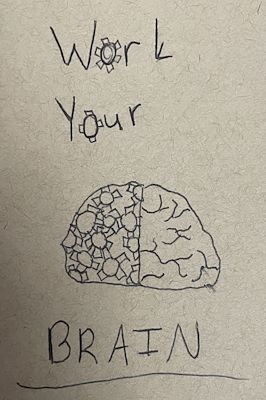 Work
Your
BRAIN